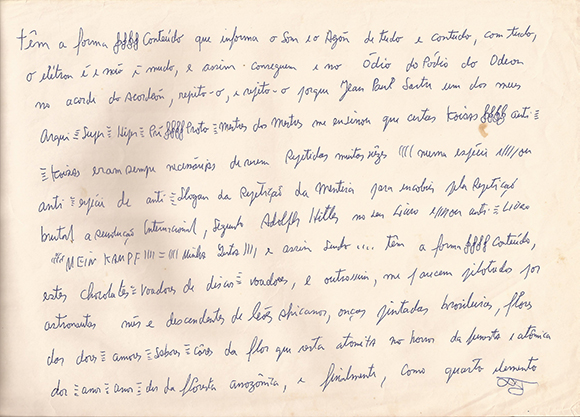 têm a forma ∫∫∫∫ Conteúdo que informa o Som e o Agôn de tudo e contudo, com tudo,
o elétron é e não é mudo, e assim conseguem e no Ódio do Pódio do Odeon
no acorde do Acordeón, repito-o, e repito-o porque Jean Paul Sartre um dos meus
Arqui ≡ Super ≡ Hiper ≡ Pré ∫∫∫∫ Proto ≡ Mestres dos Mestres me ensinou que certas Koisas ∫∫∫∫ anti ≡
≡ Koisas eram sempre necessárias de serem Repetidas muitas vêzes //// numa espécie e////ou
anti ≡ espécie de anti ≡ Slogan da Repetição da Mentira para encobrir pela Repetição
brutal a Internacional, Segundo Adolph Hitler no seu Livro e////ou anti ≡ Livro
"MEIN KAMPF //// = //// Minha Luta ////, e assim sendo ... têm a forma ∫∫∫∫ Conteúdo,
estes chocolates ≡ voadores de discos ≡ voadores, e outrossim, me parecem pilotados por
astronautas nús e descendentes de leões africanos, onças pintadas brasileiras, flores
das dores ≡ amores ≡ sabores ≡ côres da flor que resta atonita no horror da floresta e atômica
dor ≡ amor ≡ amor ≡ dor da floresta amazônica, e finalmente, como quarto elemento